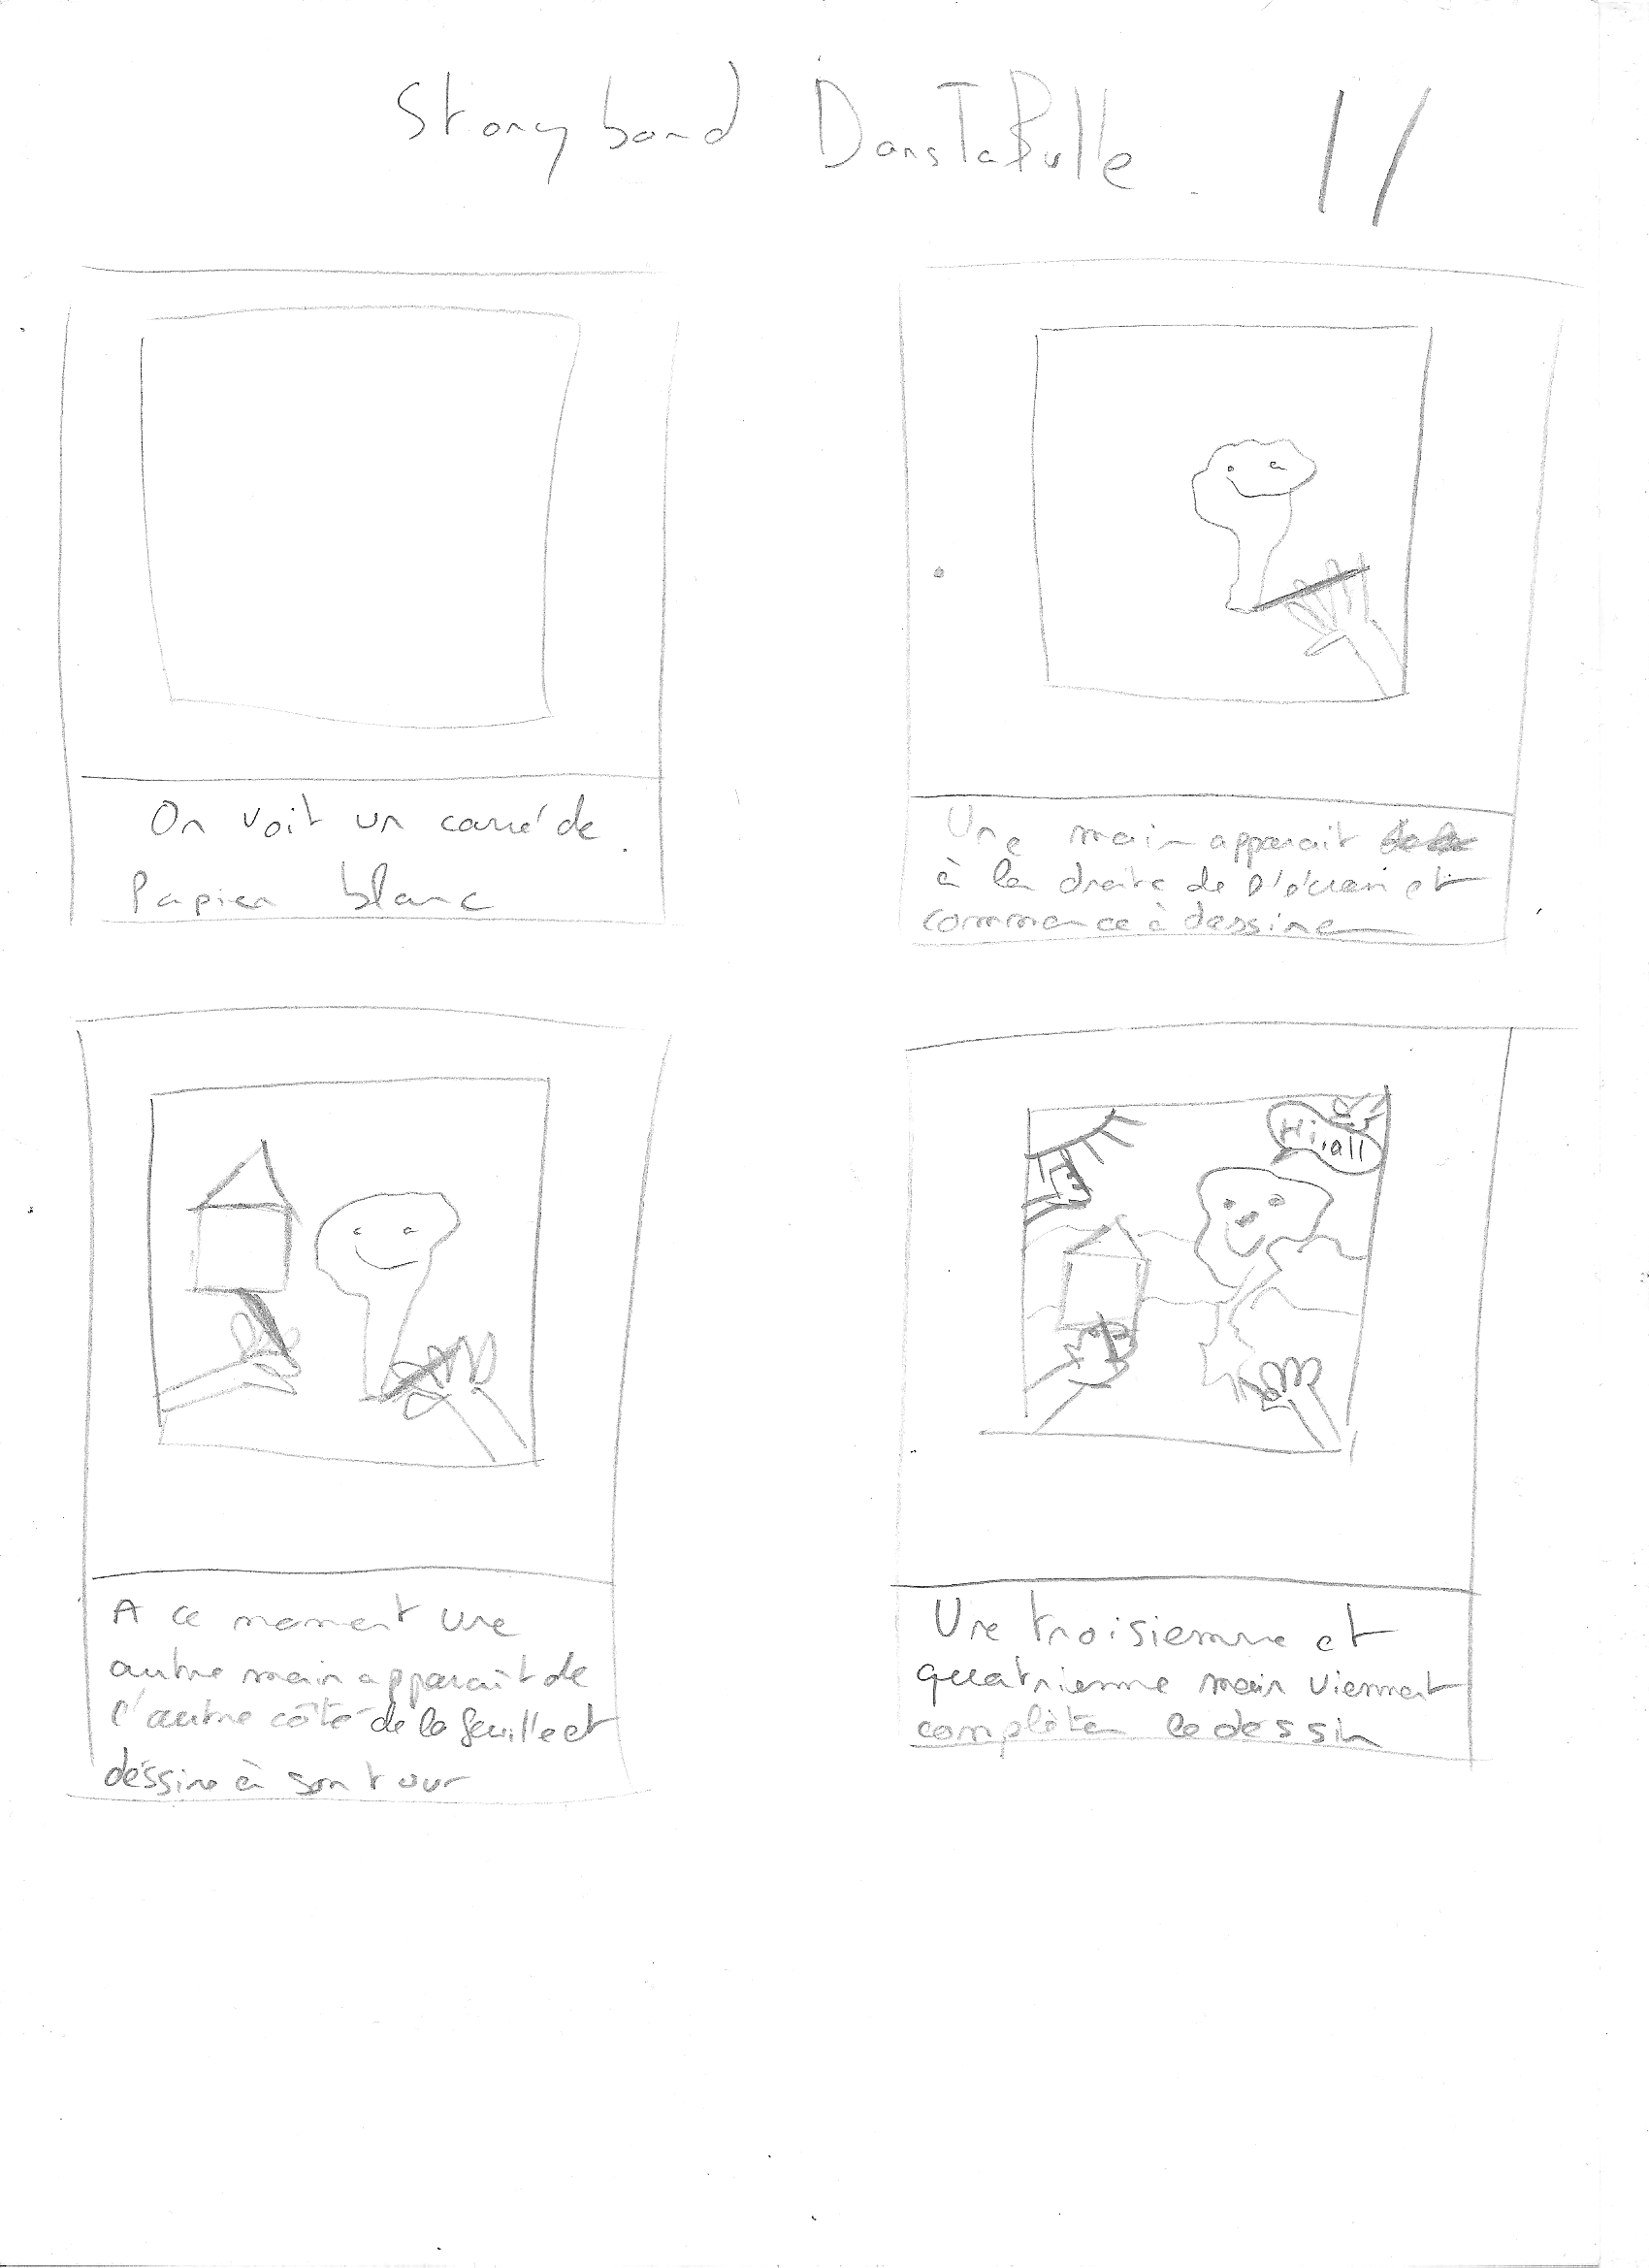 Storyboard DansTaBulle. 11
On voit un carré de
Papier blanc.
Une main apparait
à la droite de l'écran et
commence à dessiner
A ce moment une
autre main apparaît de
l'autre côté de la feuille et
déssine à son tour
Hi all
Une troisiemme et
quatriemme main viennent
complèter le dessin